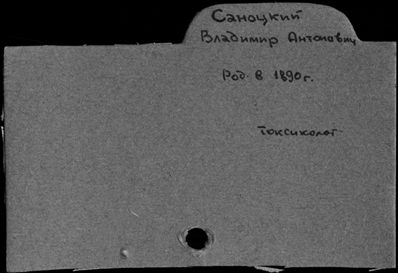 Саноцкий
Владимир Антонович
Род. в 1890г.
токсиколог